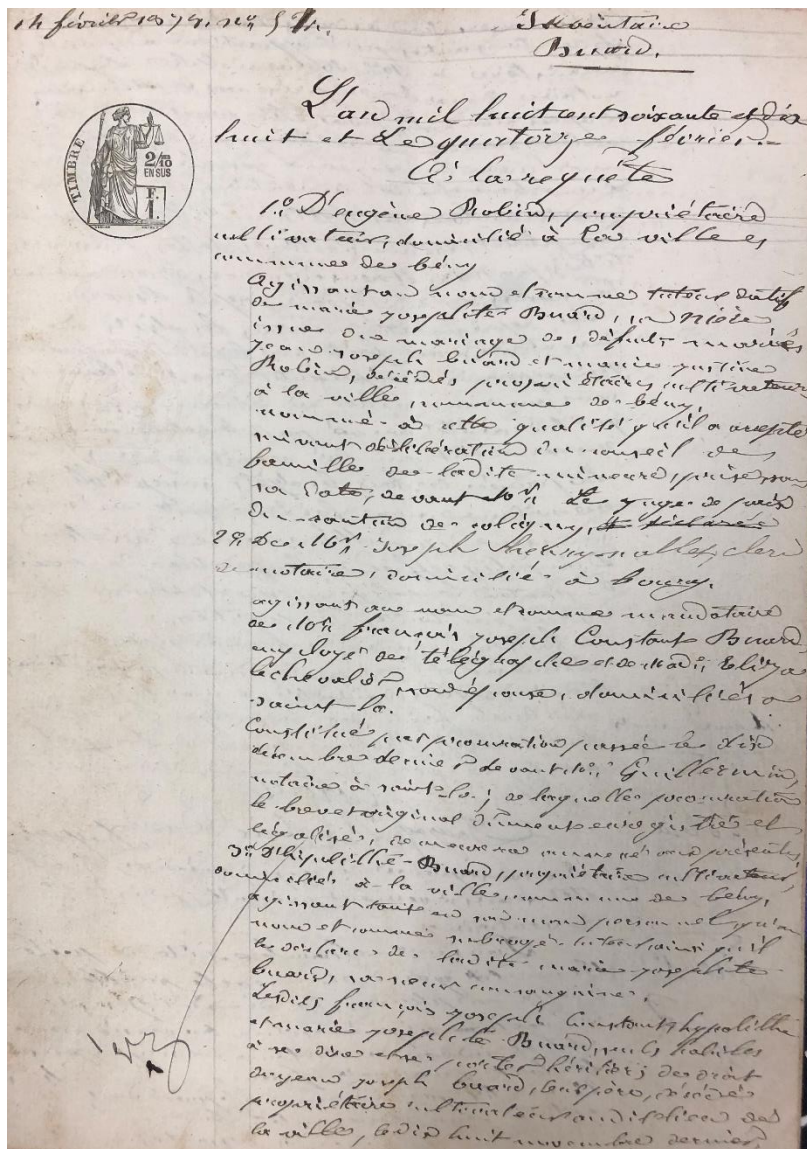 14 février 1878. no
Inventaire
Buard.
TIMBRE
2/10
EN SUS
F.
1.
L'an mil huit cent soixante et dix
huit et Le quatorze février.
A la requête
1o D'eugène Robin, propriétaire
cultivateur, domicilié à La ville
commune de bény
agissant au nom et comme tuteur datif
de marie josephte Buard, sa nièce
issue du mariage des défunts mariés
jean joseph buard et marie justine
Robin, décédés propriétaires cultivateurs
à la ville, commune de bény,
nommé à cette qualité qu'il a acceptée
suivant délibération du conseil de
famille de ladite mineure, prise sous
sa date, devant Mr. Le juge de paix
du canton de coligny,
2o De Mr. joseph clerc
de notaire, domicilié à bourg.
agissant au nom et comme mandataire
de Mr. françois joseph Constant Buard,
employé de télégraphe et de Made. Eliza
lechevalier son épouse, domiciliés à
saint lo.
Constitué par procuration passée le dix
décembre dernier devant Me. Guillemin,
notaire à saint-lo; de laquelle procuration
le brevet original dûment enregistré et
légalisé, demeurera annexé aux présentes,
3o D'hipolithe Buard, propriétaire cultivateur,
domicilié à la ville, commune de bény,
agissant tant en son nom personnel, qu'au
nom et comme subrogé tuteur ainsi qu'il
le déclare de ladite marie josephte
buard, sa sœur consanguine.
Lesdits françois joseph Constant, hypolithe
et marie josephte Buard, seuls habiles
à se dire et se porter héritiers de droit
de jean joseph buard, leur père, décédé
propriétaire cultivateur audit lieu de
la ville, le dix huit novembre dernier,